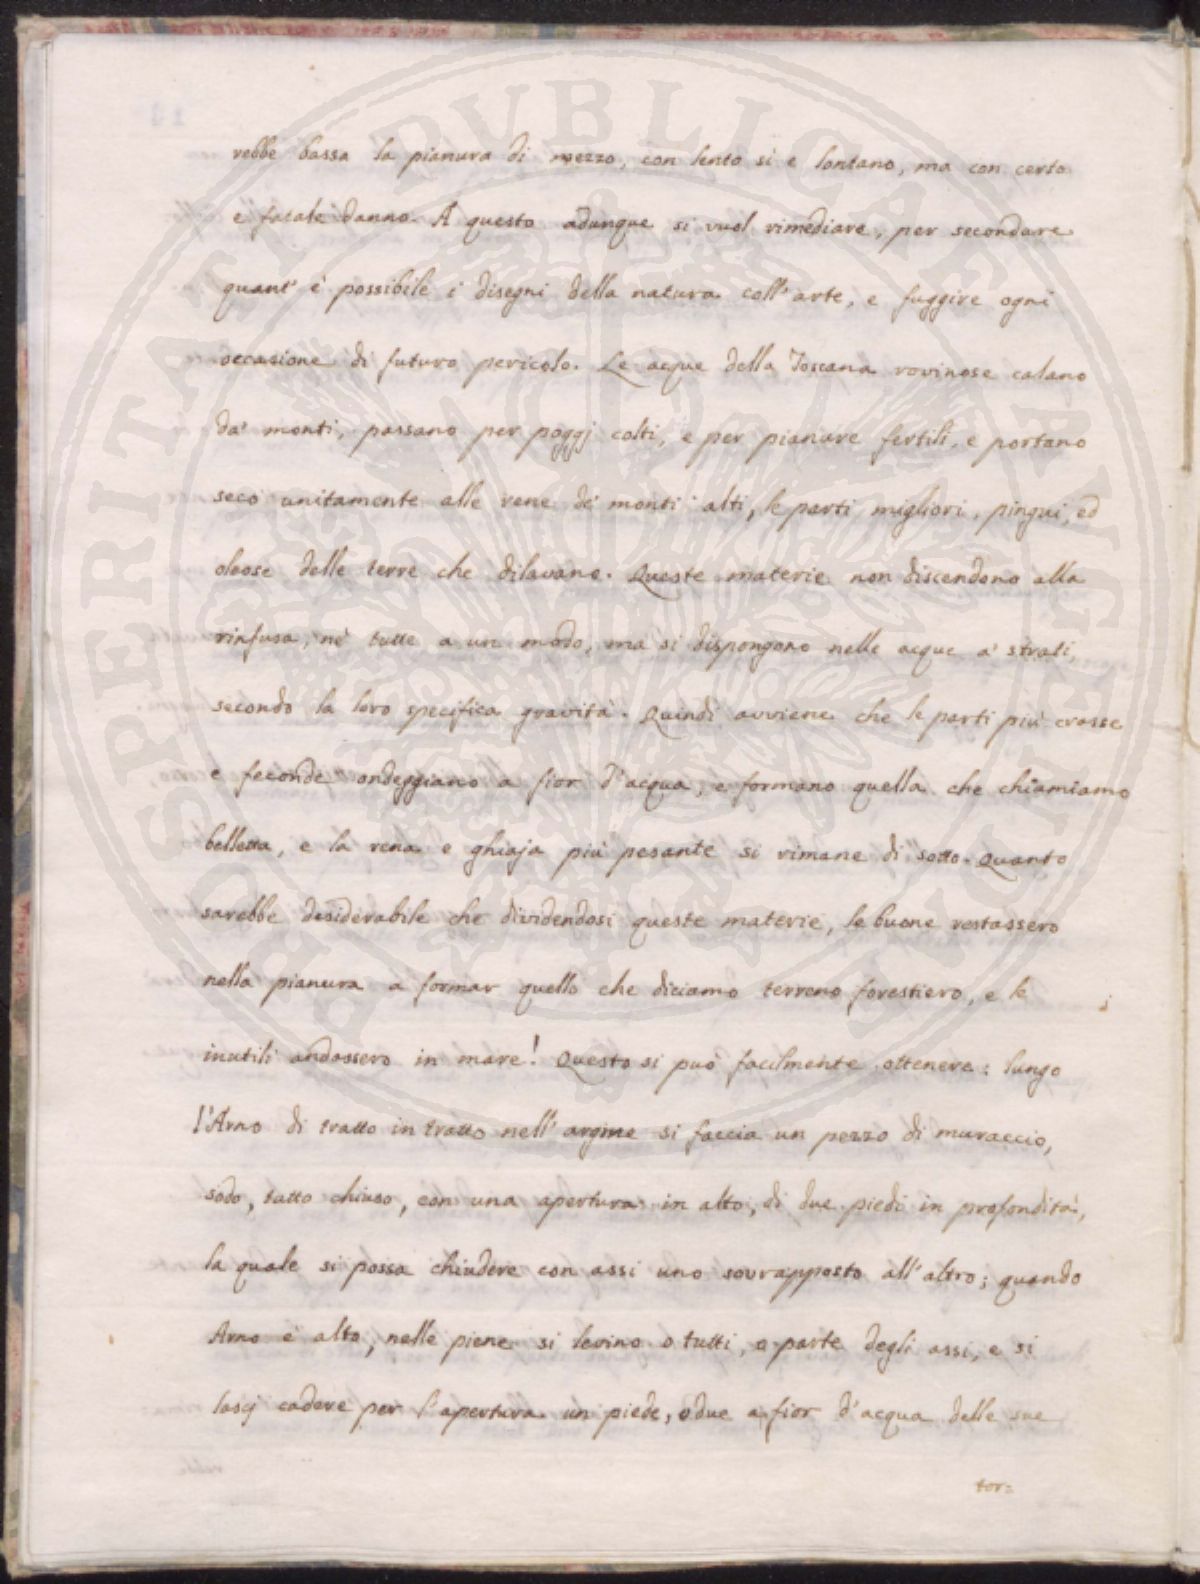 rebbe bassa la pianura di mezzo, con lento sì e lontano, ma con certo
e fatale danno. A questo adunque si vuol rimediare, per secondare
quant' è possibile i disegni della natura coll' arte, e fuggire ogni
occasione di futuro pericolo. Le acque della Toscana rovinose calano
da' monti, passano per poggj colti, e per pianure fertili, e portano
seco unitamente alle rene de' monti alti, le parti migliori, pingui, ed
oleose delle terre che dilavano. Queste materie non discendono alla
rinfusa, nè tutte a un modo, ma si dispongono nelle acque a' strati,
secondo la loro specifica gravità. Quindi avviene che le parti più crasse
e feconde ondeggiano a fior d'acqua, e formano quella che chiamiamo
belletta, e la rena e ghiaja più pesante si rimane di sotto. Quanto
sarebbe desiderabile che dividendosi queste materie, le buone restassero
nella pianura a formar quello che diciamo terreno forestiero, e le
inutili andassero in mare! Questo si può facilmente ottenere: lungo
l'Arno di tratto in tratto nell' argine si faccia un pezzo di muraccio,
sodo, tutto chiuso, con una apertura in alto, di due piedi in profondità,
la quale si possa chiudere con assi uno sovrapposto all' altro; quando
Arno è alto, nelle piene si levino o tutti, o parte degli assi, e si
lascj cadere per l'apertura un piede, o due a fior d'acqua delle sue
tor=
SPERITATI PUBLICAE AVGENDAE PROSPERITATI